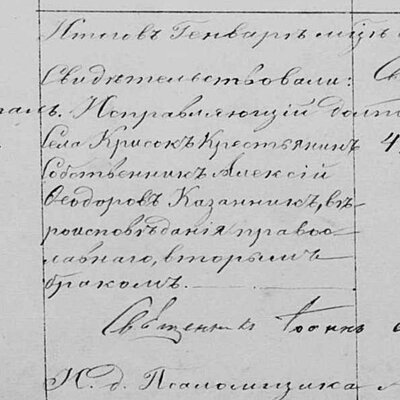 Итого въ Генварѣ мѣс
Свидѣтельствовали: С
Исправляющій долж
Села Крисокъ Крестьянинъ 4
Собственникъ Алексій
Ѳеодоровъ Казанникъ, вѣ-
роисповѣданія правос-
лавнаго, вторымъ
бракомъ.
Священникъ Іоаннъ
И. д. Псаломщика